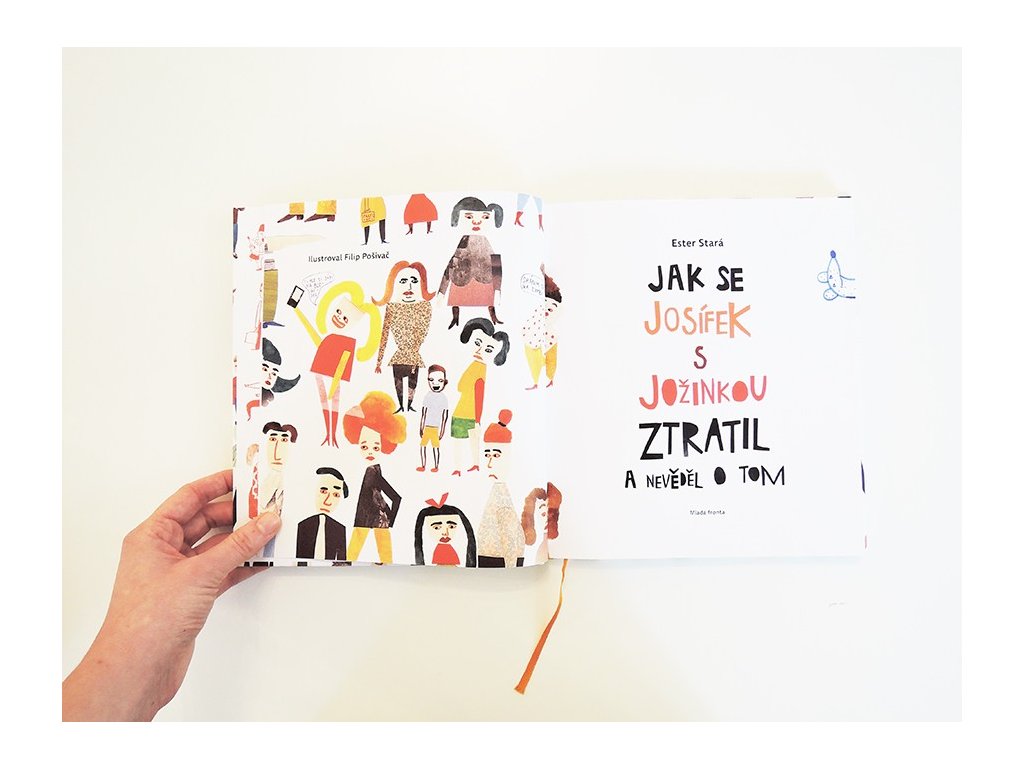 Ilustroval Filip Pošivač
Ester Stará
JAK SE
JOSÍFEK
S
JOŽINKOU
ZTRATIL
A NEVĚDĚL O TOM
Mladá fronta